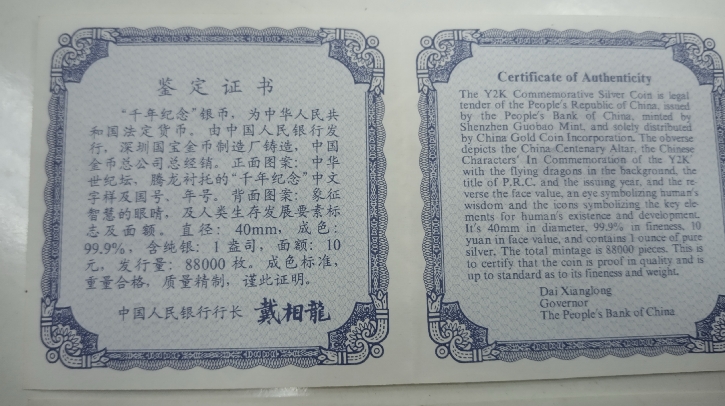 鉴定证书
“千年纪念”银币，为中华人民共
和国法定货币。由中国人民银行发
行，深圳国宝金币制造厂铸造，中国
金币总公司总经销。正面图案：中华
世纪坛、腾龙衬托的“千年纪念”中文
字样及国号、年号。背面图案：象征
智慧的眼睛，及人类生存发展要素标
志及面额。直径：40mm，成色：
99.9%，含纯银：1 盎司，面额：10
元，发行量：88000 枚。成色标准，
重量合格，质量精制，谨此证明。
中国人民银行行长 戴相龍
Certificate of Authenticity
The Y2K Commemorative Silver Coin is legal
tender of the People's Republic of China, issued
by the People's Bank of China, minted by
Shenzhen Guobao Mint, and solely distributed
by China Gold Coin Incorporation. The obverse
depicts the China Centenary Altar, the Chinese
Characters' In Commemoration of the Y2K'
with the flying dragons in the background, the
title of P.R.C. and the issuing year, and the re-
verse the face value, an eye symbolizing human's
wisdom and the icons symbolizing the key ele-
ments for human's existence and development.
It's 40mm in diameter, 99.9% in fineness, 10
yuan in face value, and contains 1 ounce of pure
silver. The total mintage is 88000 pieces. This is
to certify that the coin is proof in quality and is
up to standard as to its fineness and weight.
Dai Xianglong
Governor
The People's Bank of China